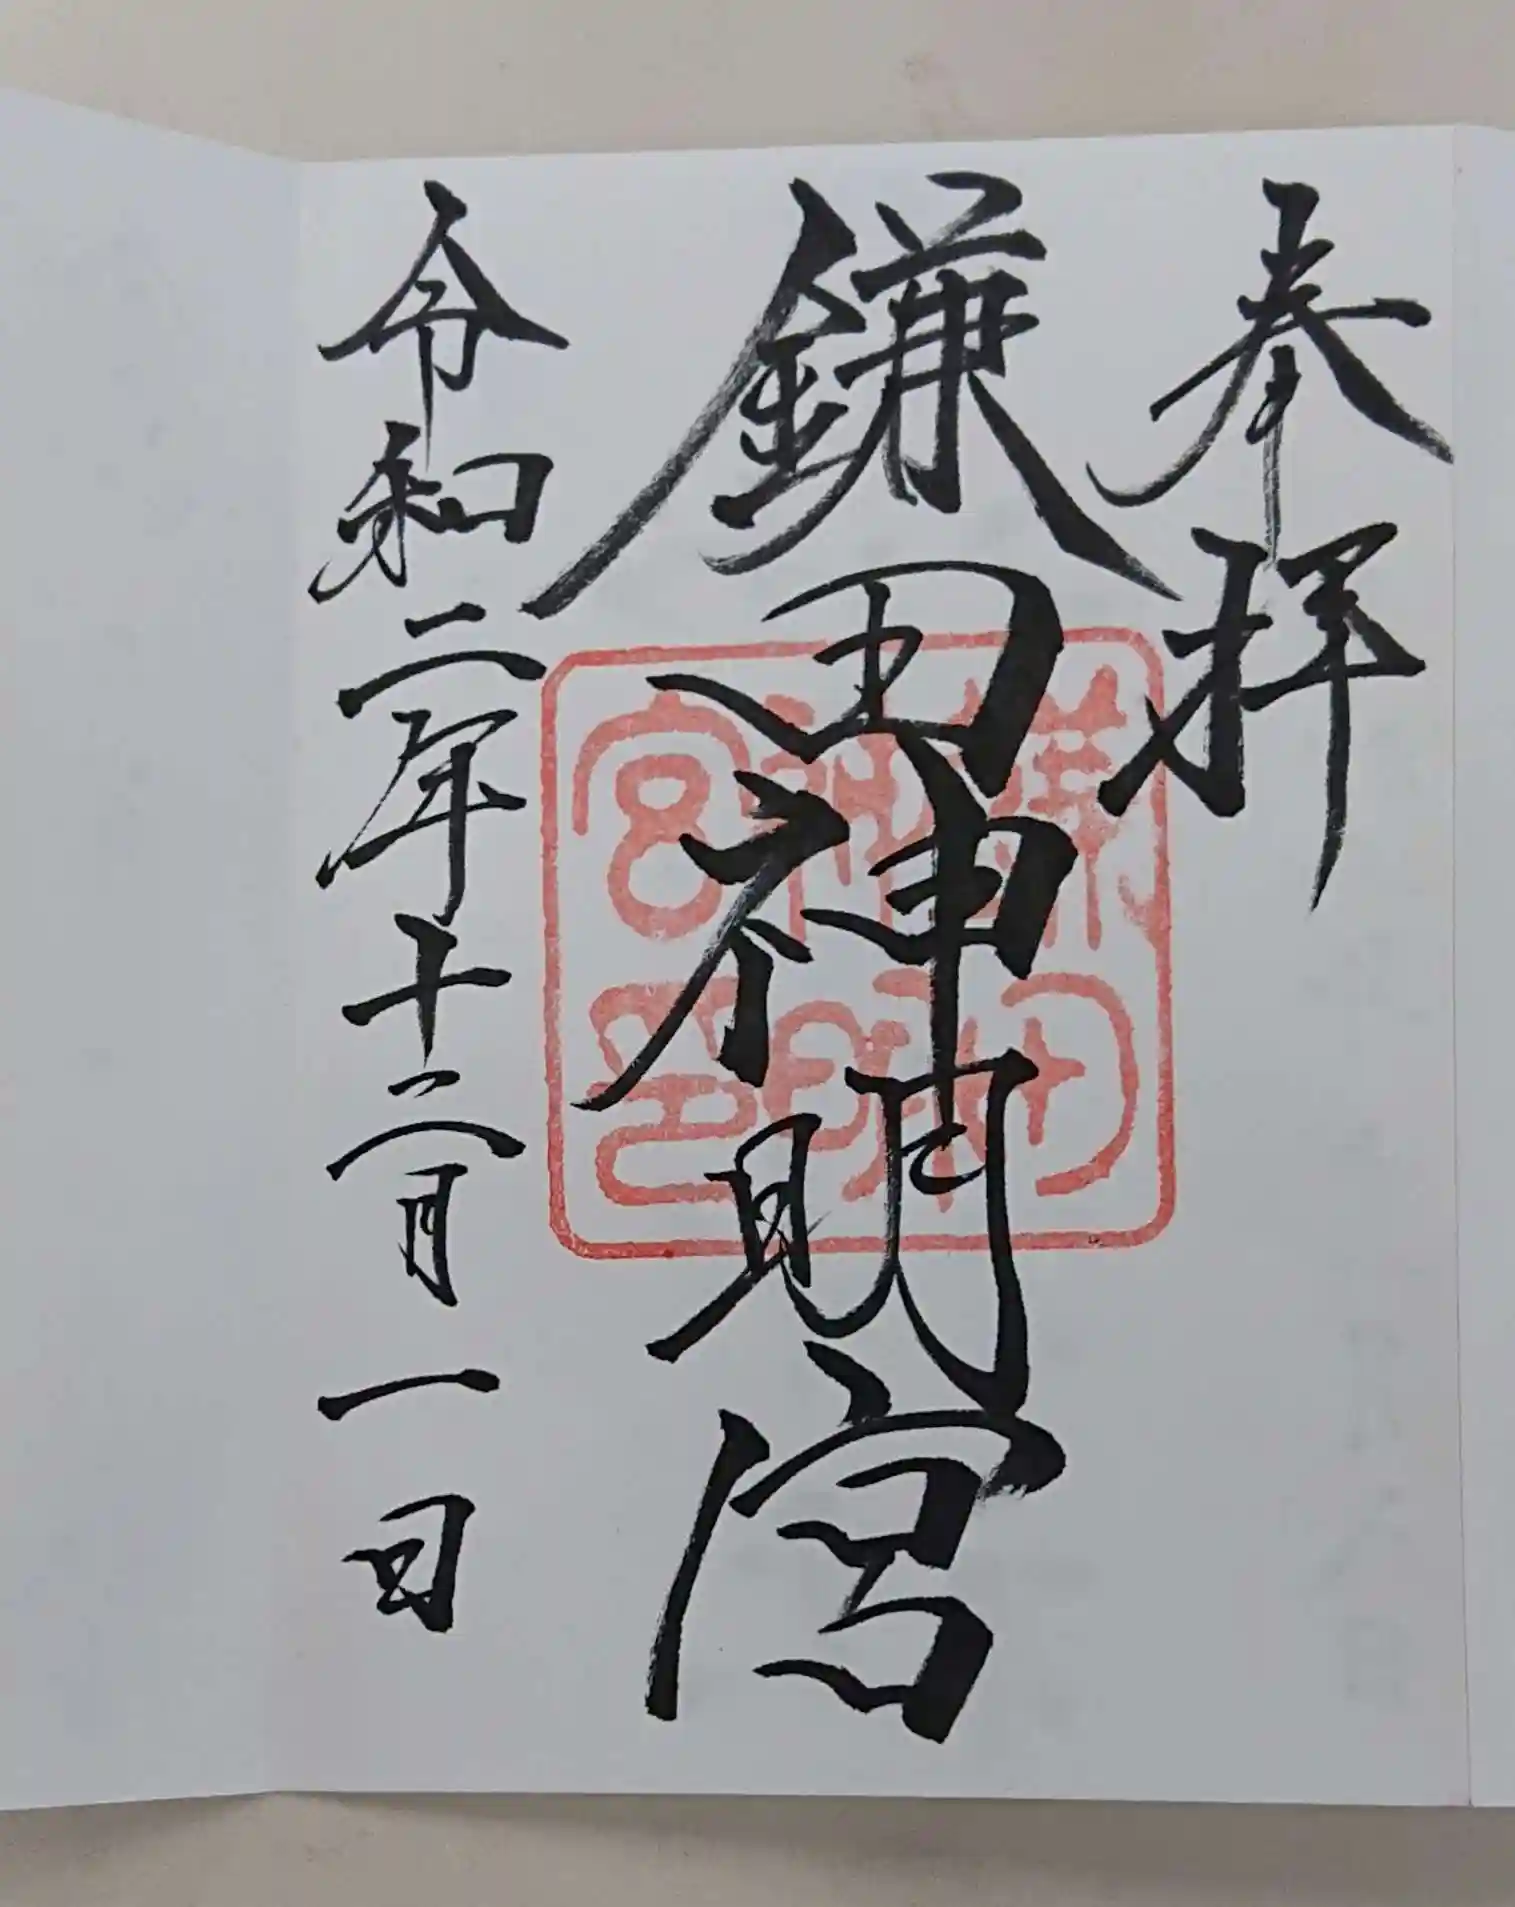 奉拝
鎌田神明宮
令和二年十二月一日
鎌田
神明
宮印